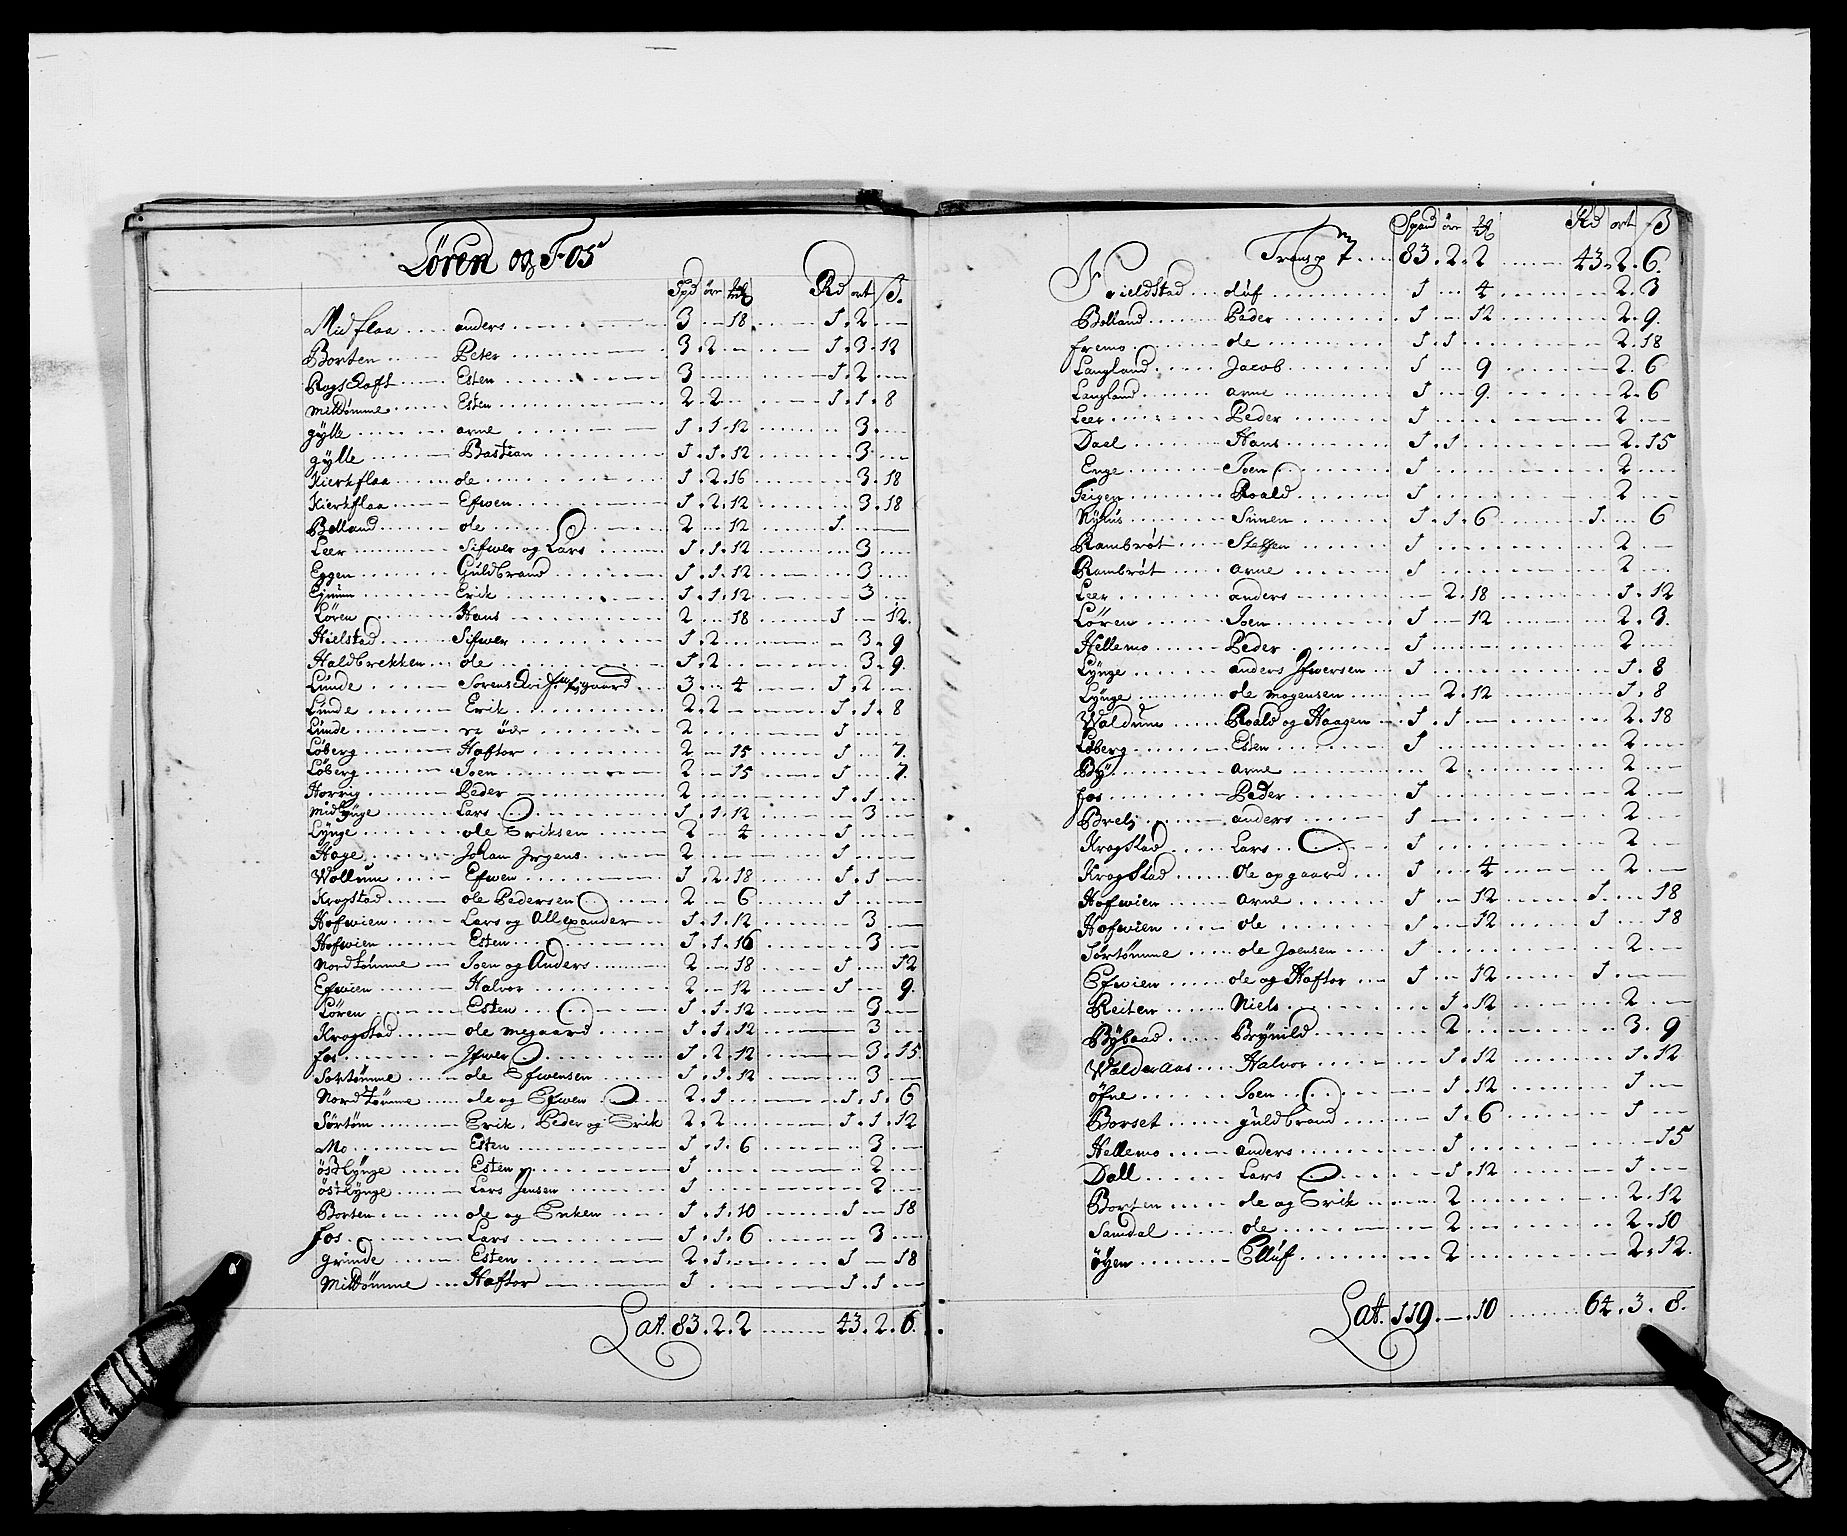 Løren og Fos
Spd ört mk Rd ort ß.
Midflaa anders 3 18 1 2
Borten Peter 3 2 1 3 12
Rogstoft Esten 3 1 2
mitdømme Esten 2 2 1 1 8
gylle arne 1 1 12 3
gylle Bastian 1 1 12 3
Kierkflaa ole 1 2 16 3 18
Kierkflaa Efwen 1 2 12 3 18
Bolland ole 2 12 1
Leer Sifwer og Lars 1 1 12 3
Eggen Guldbrand 1 1 12 3
Erik 1 1 12 3
Løren Hans 2 18 1 12
Hielstad Sifwer 1 2 3 9
Haldbrekken ole 1 2 3 9
Lunde 3 4 1 2
Lunde Erik 2 2 1 1 8
Lunde 2 1
Løberg Haftor 2 15 1 7
Løberg Joen 2 15 1 7
Horrig Peder 2 1 1
Midlynge Lars 1 1 12 3
Lynge ole Eriksen 2 4 1
Hage Johan Jrgens 2 1
Wollum Efwen 1 2 18 1 1
Krogstad ole Pedersen 2 6 1
Hofwien Lars og Allexander 1 1 12 3
Hofwien Esten 1 1 16 3
Nordtømme Joen og Anders 2 18 1 12
Efwien Halvor 2 12 1 9
Løren Esten 1 1 12 3
Krogstad ole megaard 1 1 12 3
fos Jfwer 1 2 12 3 15
Sortømme ole Efwensen 1 1 12 3
Nordtømme ole og Efwen 2 1 1 1 6
Sörtöm Erik, Peder og Erik 2 2 1 1 12
Mo Esten 1 1 6 3
östlynge Esten 1 2
östlynge Lars Jensen 1 2
Borten ole og Enken 1 1 10 1 18
fos Lars 1 1 6 3
grinde Esten 2 1 1 18
Mittømme Haftor 1 1 1
Lat. 83. 2. 2 43. 2. 6.
Spand öre mk Rd ort ß
Transp 83. 2. 2 43. 2. 6.
Fieldstad oluf 1 4 2 3
Bolland Peder 1 12 2 9
fremo ole 1 1 2 18
Langland Jacob 1 9 2 6
Langland arne 1 9 2 6
Leer Peder 1 2
Dael Hans 1 1 2 15
Enge Joen 1 2
Teigen Roald 1 2
Simen 1 1 6 1 6
Rambrøt Steffen 1 2
Rambrøt arne 1 2
Leer anders 2 18 1 12
Lören Joen 1 12 2 3
Hellemo Peder 1 2
Lynge anders Jfwersen 1 1 8
Lynge ole mogensen 2 12 1 8
Waldum Roald og Haagen 1 1 2 18
Løberg Esten 1 2
By arne 2 2
fos Peder 1 2
anders 1 2
Krogstad Lars 1 2
Krogstad Ole opgaard 1 4 2
Hofwien arne 1 12 1 18
Hofwien ole 1 12 1 18
Sörtömme ole Joensen 1 2
Efwien ole og Haftor 1 12 1
Reiten Niels 1 12 2
Brynild 2 3 9
Walderaas Halvor 1 12 1 12
öfne Joen 1 12 1
Borset guldbrand 1 6 1
Hellemo anders 1 15
Dall Lars 1 12 1
Borten ole og Erik 2 2 12
Samdal ole 2 2 10
öyen Elluf 2 2 12
Lat. 119. 10 64. 3. 8.